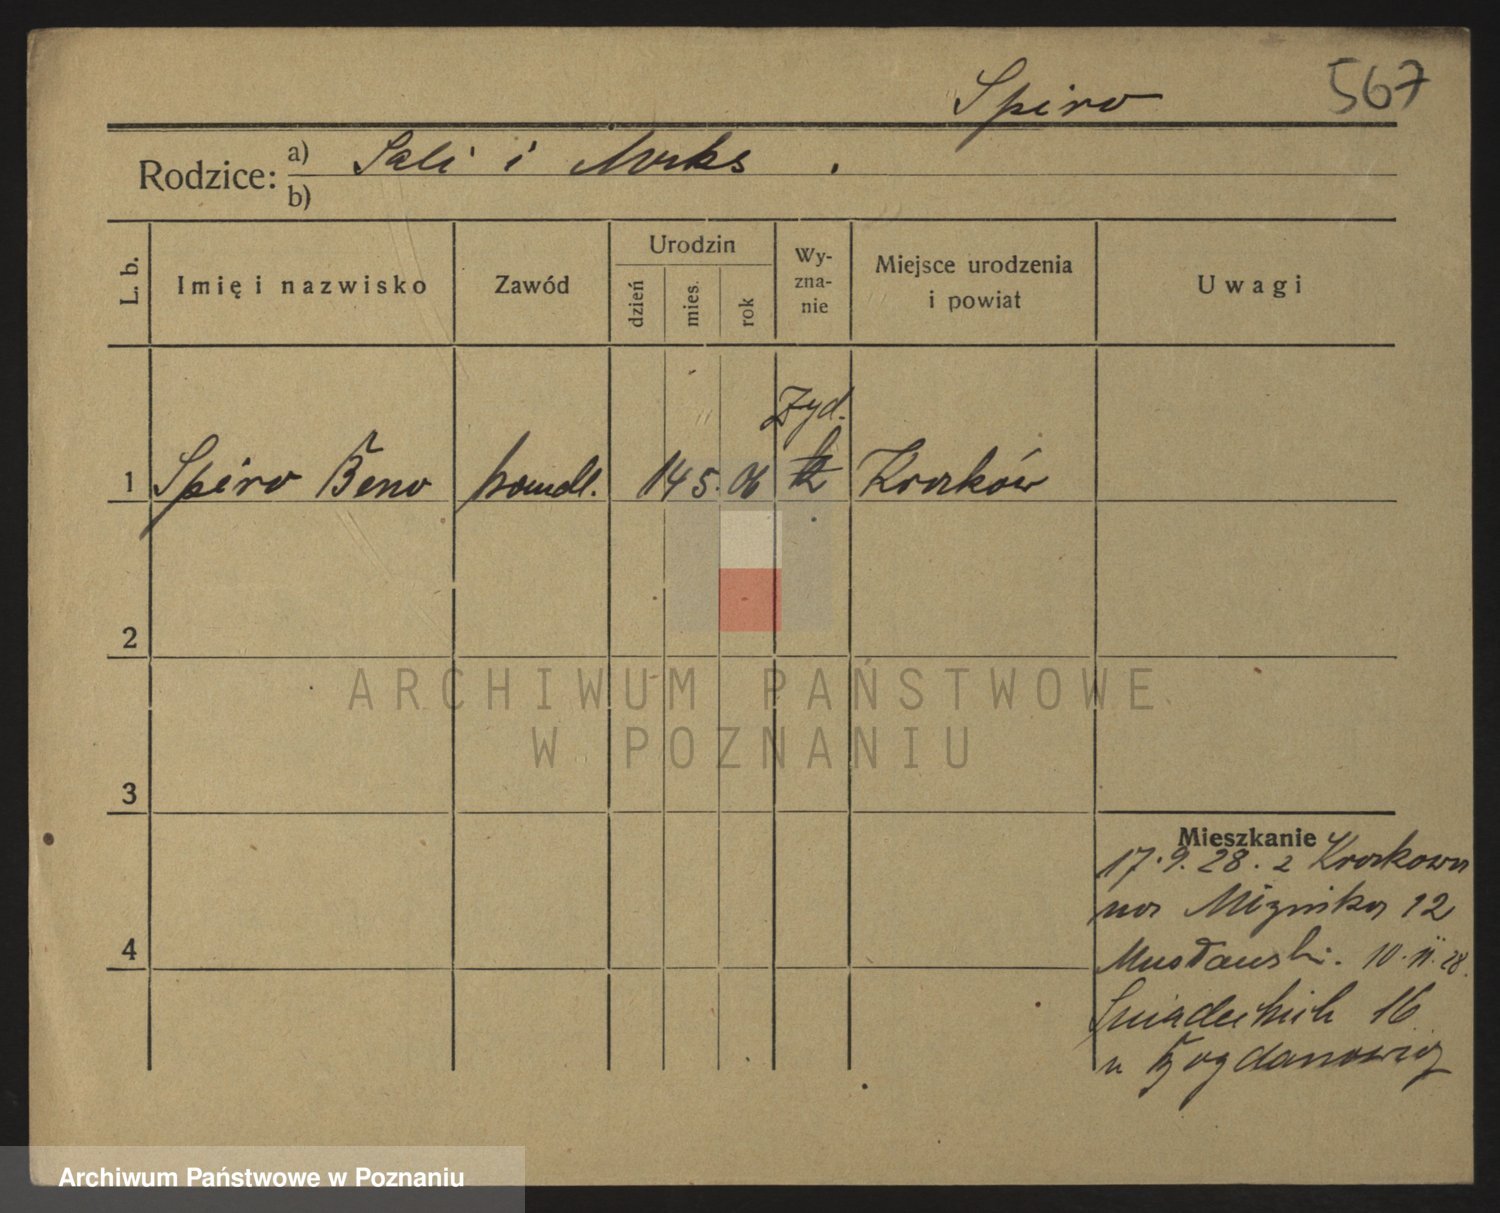 Spiro 567
Rodzice: a) Sali i Maks.
b)
L. b. Imię i nazwisko Zawód Urodzin dzień mies. rok Wyznanie Miejsce urodzenia i powiat Uwagi
Żyd.
1 Spiro Beno handl. 14 5. 06 Kraków
2
ARCHIWUM PAŃSTWOWE
W POZNANIU
3
Mieszkanie
17.9.28. z Krakowa
na Miznika 12
10.11.28.
Śniadeckich 16
u Bogdanowicz
4
Archiwum Państwowe w Poznaniu